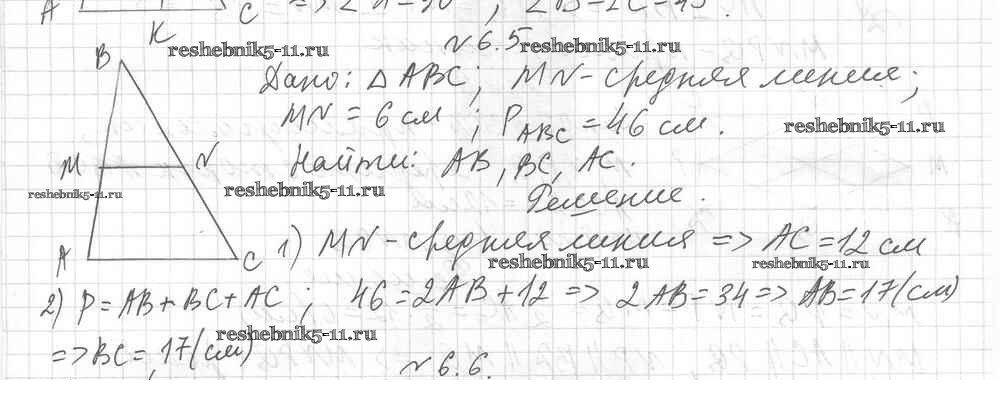 A K C => ∠A=90°, ∠B=∠C=45°.
reshebnik5-11.ru
№6.5
reshebnik5-11.ru
B
Дано: △ABC; MN-средняя линия;
MN = 6 см ; P_ABC = 46 см.
reshebnik5-11.ru
M N
Найти: AB, BC, AC.
reshebnik5-11.ru
reshebnik5-11.ru
Решение.
A C
1) MN-средняя линия => AC=12 см
reshebnik5-11.ru
reshebnik5-11.ru
2) P=AB+BC+AC ; 46=2AB+12 => 2AB=34=> AB=17(см)
reshebnik5-11.ru
=>BC=17(см)
№6.6.